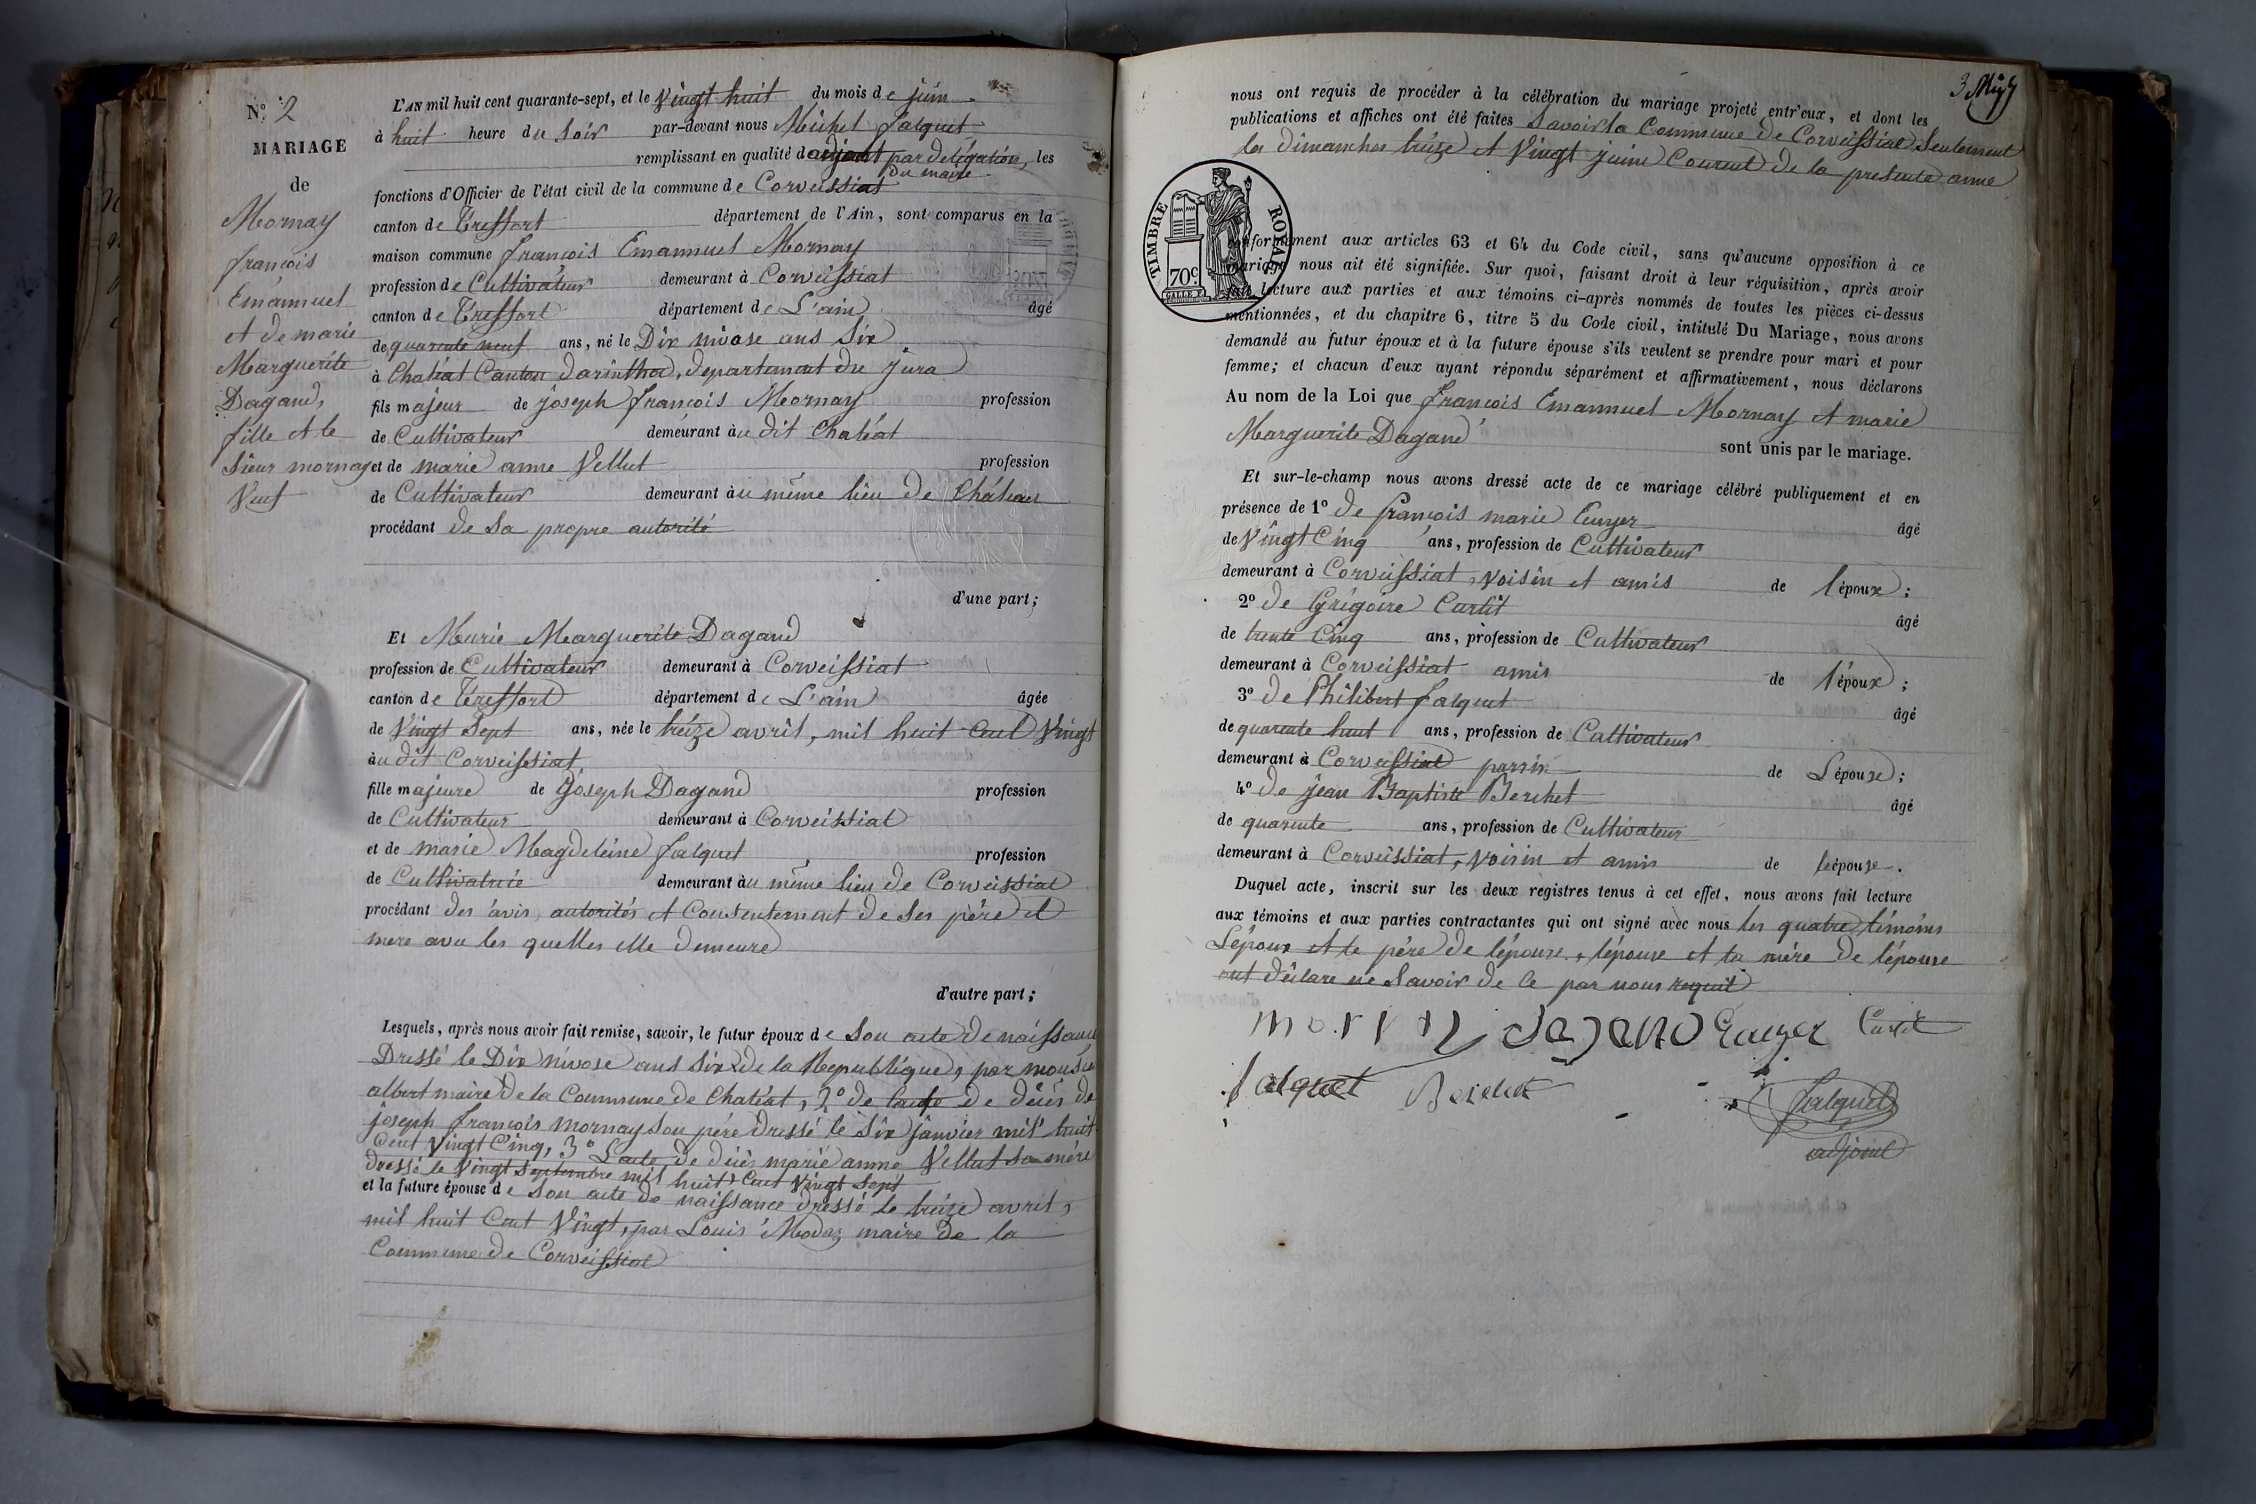 N.° 2
MARIAGE
de
Mornay
françois
Emannuel
et de marie
Marguerite
Dagand,
fille et le
Sieur mornay
Veuf
L'AN mil huit cent quarante-sept, et le Vingt huit du mois de juin
à huit heure du Soir par-devant nous Michel falquet
remplissant en qualité d'adjoint par délégation, les
du maire
fonctions d'Officier de l'état civil de la commune de Corveissiat
canton de Treffort département de l'Ain, sont comparus en la
maison commune françois Emannuel Mornay
profession de Cultivateur demeurant à Corveissiat
canton de Treffort département de L'ain âgé
de quarante neuf ans, né le Dix nivose ans Six
à Chaléat Canton darinthod, departement du jura
fils majeur de joseph françois Mornay profession
de Cultivateur demeurant àu dit Chaléat
et de marie anne Vellut profession
de Cultivateur demeurant àu même lieu de Chaléat
procédant de Sa propre autorité
d'une part;
Et Marie Marguerite Dagand
profession de Cultivateur demeurant à Corveissiat
canton de Treffort département de L'ain âgée
de Vingt Sept ans, née le treize avril, mil huit Cent Vingt
àu dit Corveissiat
fille majeure de joseph Dagand profession
de Cultivateur demeurant à Corveissiat
et de marie Magdeleine falquet profession
de Cultivatrice demeurant àu même lieu de Corveissiat
procédant des avis, autorités et Consentement de Ses père et
mere avec les quelles elle demeure
d'autre part;
Lesquels, après nous avoir fait remise, savoir, le futur époux de Son acte de naissance
Dressé le Dix nivose ans Six de la Republique, par
albert maire de la Commune de Chaléat, 2° de de décès de
joseph françois mornay Son père dressé le Six janvier mil huit
Cent Vingt Cinq, 3° L'acte de décès marie anne Vellut Sa mère
dressé le Vingt Septembre mil huit Cent Vingt Sept
et la future épouse de Son acte de naissance dressé le treize avril,
mil huit Cent Vingt, par Louis maire de la
Commune de Corveissiat
3
nous ont requis de procéder à la célébration du mariage projeté entr'eux, et dont les
publications et affiches ont été faites Savoir la Commune de Corveissiat Seulement
les dimanches treize et Vingt juin Courent de la presente anne
TIMBRE ROYAL
70c
conformément aux articles 63 et 64 du Code civil, sans qu'aucune opposition à ce
mariage nous ait été signifiée. Sur quoi, faisant droit à leur réquisition, après avoir
fait lecture aux parties et aux témoins ci-après nommés de toutes les pièces ci-dessus
mentionnées, et du chapitre 6, titre 5 du Code civil, intitulé Du Mariage, nous avons
demandé au futur époux et à la future épouse s'ils veulent se prendre pour mari et pour
femme; et chacun d'eux ayant répondu séparément et affirmativement, nous déclarons
Au nom de la Loi que françois Emannuel Mornay et marie
Marguerite Dagand sont unis par le mariage.
Et sur-le-champ nous avons dressé acte de ce mariage célébré publiquement et en
présence de 1° de françois marie âgé
de Vingt Cinq ans, profession de Cultivateur
demeurant à Corveissiat, voisin et amis de l'époux;
2° de Grégoire Curtit âgé
de trente Cinq ans, profession de Cultivateur
demeurant à Corveissiat amis de l'époux;
3° de Philibert falquet âgé
de quarante huit ans, profession de Cultivateur
demeurant à Corveissiat parrin de L'épouse;
4° de jean Baptiste Berchet âgé
de quarente ans, profession de Cultivateur
demeurant à Corveissiat, voisin et amis de l'épouse.
Duquel acte, inscrit sur les deux registres tenus à cet effet, nous avons fait lecture
aux témoins et aux parties contractantes qui ont signé avec nous les quatre témoins
L'époux et le père de l'épouse, l'épouse et la mère de l'épouse
ont déclare ne Savoir de Ce par nous requit
mornay dagand Curtit
falquet
falquet
adjoint